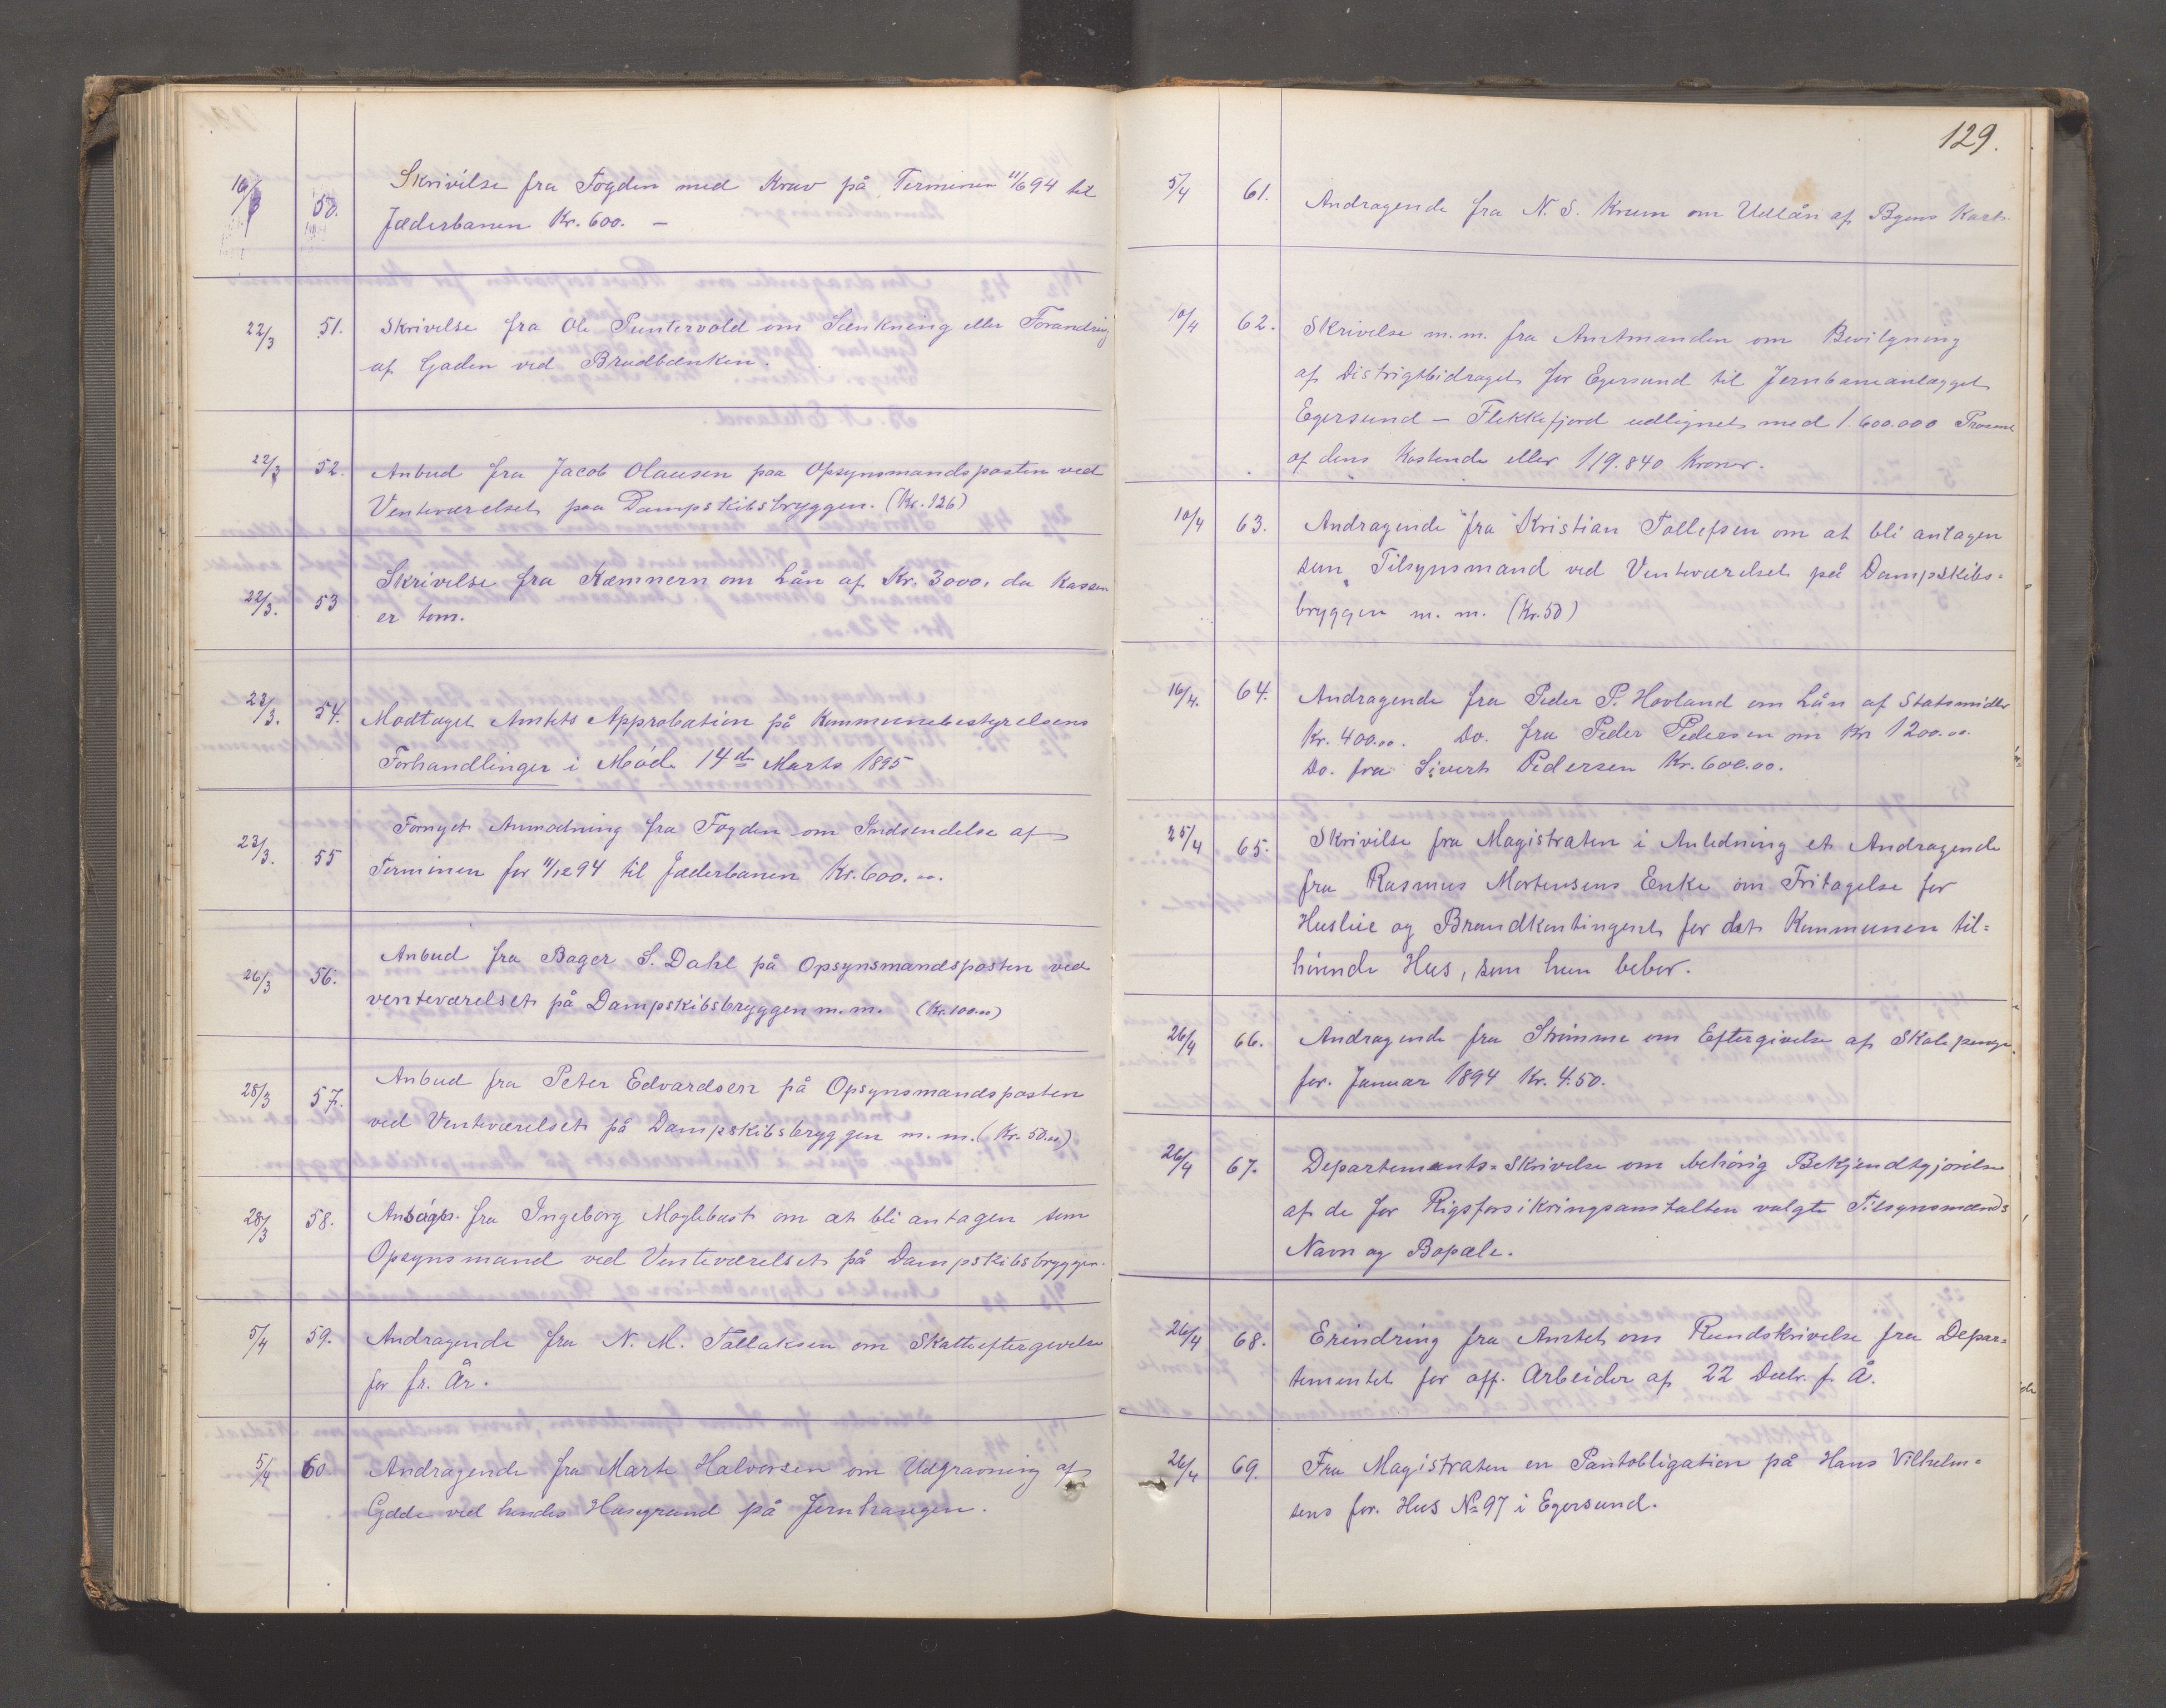 16/3 50. Skrivelse fra Fogden med Krav på Terminen 11/6 94 til
Jæderbanen Kr. 600. —
22/3 51. Skrivelse fra Ole Puntervold om Sænkning eller Forandring
af Gaden ved Bradbænken.
22/3 52. Anbud fra Jacob Olausen paa Opsynsmandsposten ved
Venteværelset paa Dampskibsbryggen. (Kr. 126)
22/3. 53 Skrivelse fra Kæmnern om Lån af Kr. 3000, da Kassen
er tom.
23/3. 54. Modtaget Amtets Approbation på Kommunebestyrelsens
Forhandlinger i Møde 14de Marts 1895
23/3. 55 Fornyet Anmodning fra Fogden om Indsendelse af
Terminen for 11/12 94 til Jæderbanen Kr. 600.00.
26/3 56. Anbud fra Bager S. Dahl på Opsynsmandsposten ved
venteværelset på Dampskibsbryggen m. m. (Kr. 100.00)
28/3 57. Anbud fra Peter Edvardsen på Opsynsmandsposten
ved Venteværelset på Dampskibsbryggen m. m. (Kr. 50.00)
28/3 58. Ansøgn. fra Ingeborg Møglebust om at bli antagen som
Opsynsmand ved Venteværelset på Dampskibsbryggen.
5/4 59. Andragende fra N. M. Tallaksen om Skatteeftergivelse
for fr. År.
5/4 60. Andragende fra Marte Halvorsen om Udgravning af
Gade ved hendes Husgrund på Jernhaugen.
129.
5/4 61. Andragende fra N. S. Krum om Udlån af Byens Kart.
10/4 62. Skrivelse m. m. fra Amtmanden om Bevilgning
af Distrigtbidraget for Egersund til Jernbaneanlægget
Egersund — Flekkefjord udlignet med 1.600.000 Procent
af dens Kostende eller 119.840 Kroner.
10/4 63. Andragende fra Kristian Tollefsen om at bli antagen
som Tilsynsmand ved Venteværelset på Dampskibs=
bryggen m. m. (Kr. 50)
16/4. 64. Andragende fra Peder P. Hovland om Lån af Statsmidler
Kr. 400.00. Do. fra Peder Pedersen om Kr 1200.00
Do. fra Sivert Pedersen Kr. 600.00.
25/4 65. Skrivelse fra Magistraten i Anledning et Andragende
fra Rasmus Mortensens Enke om Fritagelse for
Husleie og Brandkontingent for det Kommunen til=
hørende Hus, som hun bebor.
26/4 66. Andragende fra Strømme om Eftergivelse af Skolepenge
for Januar 1894 Kr. 4.50.
26/4 67. Departements=Skrivelse om behørig Bekjendtgjørelse
af de for Rigsforsikringsanstalten valgte Tilsynsmænds
Navn og Bopæle.
26/4 68. Erindring fra Amtet om Rundskrivelse fra Depar=
tementet for off. Arbeider af 22 Decbr. f. Å.
26/4 69. Fra Magistraten en Pantobligation på Hans Vilhelm=
sens for. Hus No 97 i Egersund.